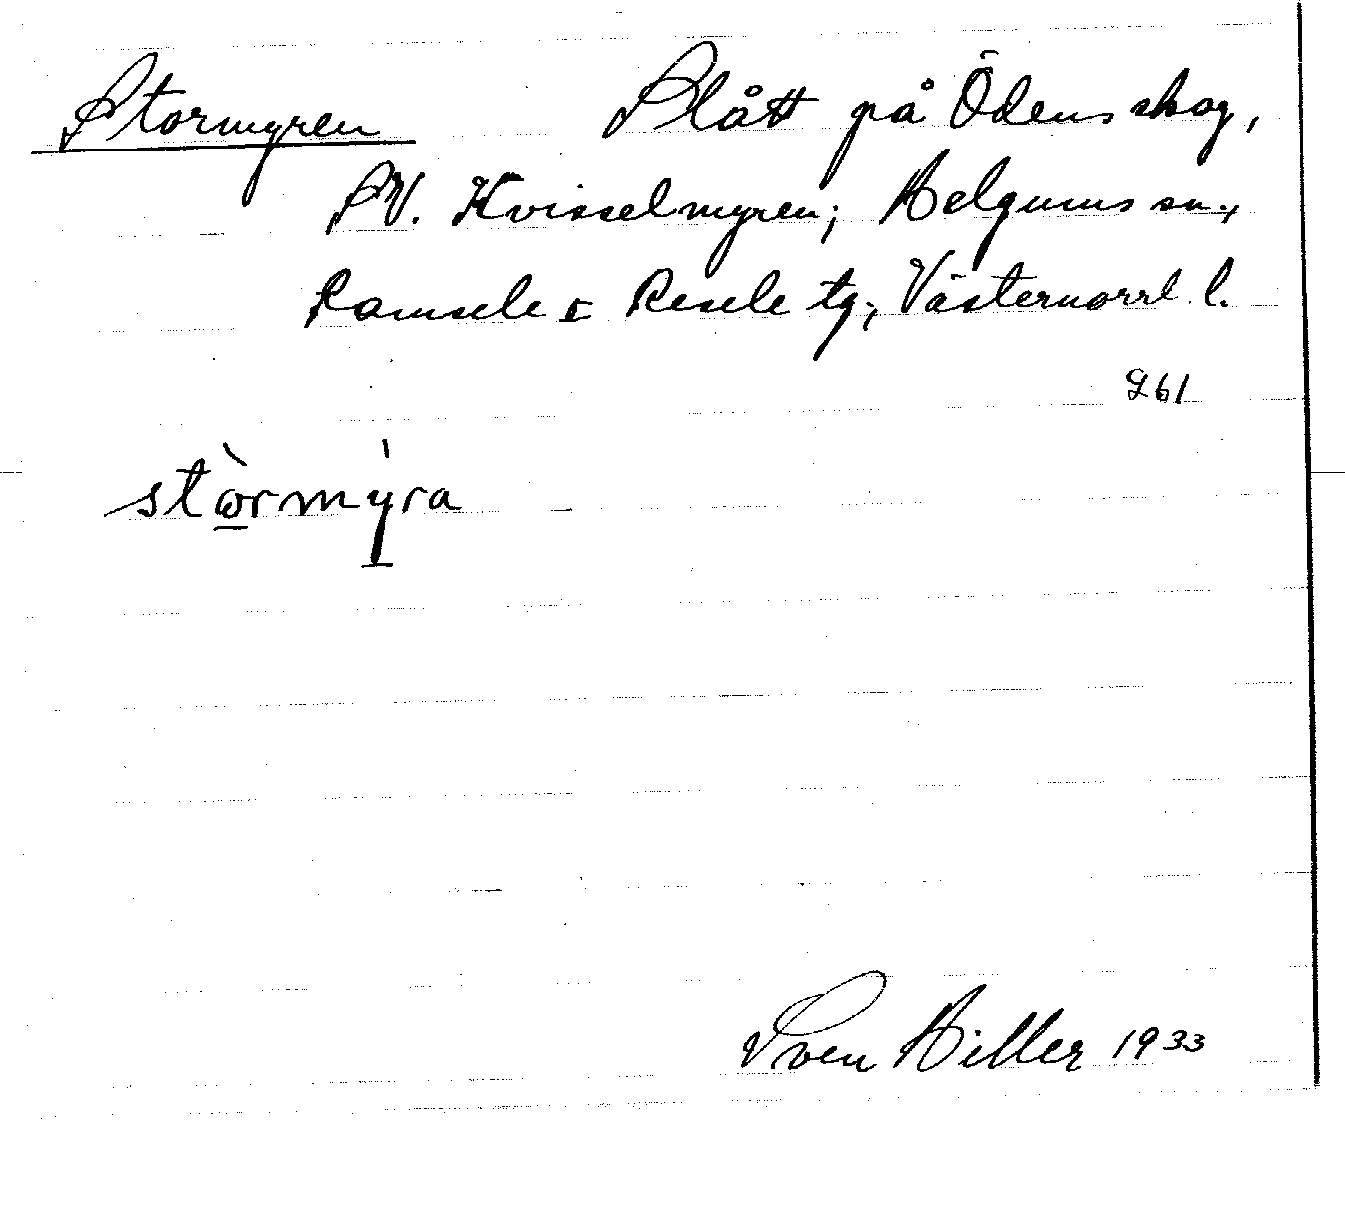 Stormyren Slått på Ödens skog,
SV. Kvisselmyren; Helgums sn.,
Ramsele & Resele tg; Västernorrl. l.
261
stòrmýra
Sven Hiller 1933